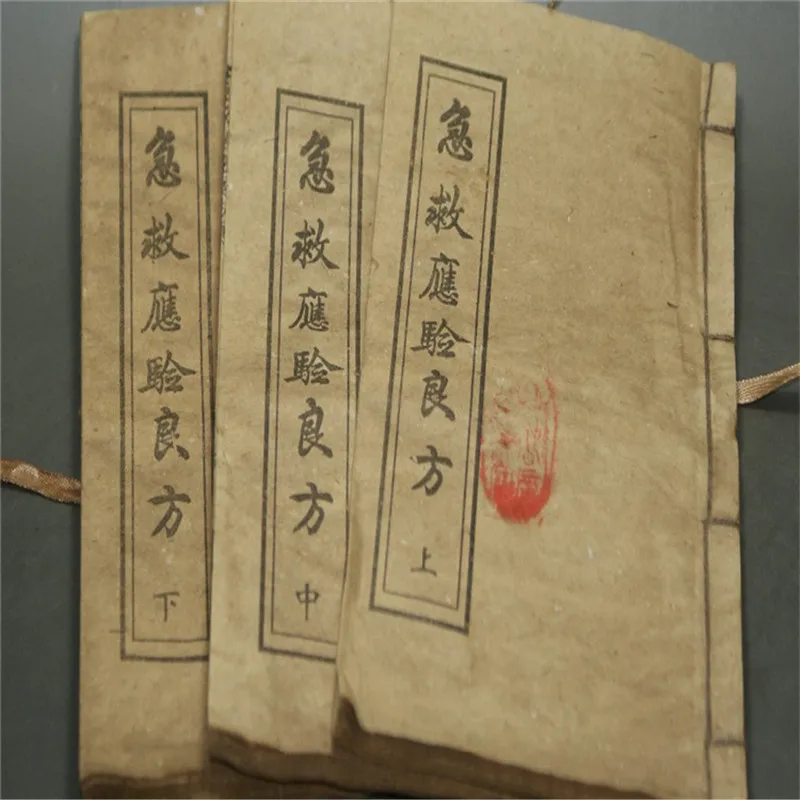 急救應驗良方
上
急救應驗良方
中
急救應驗良方
下